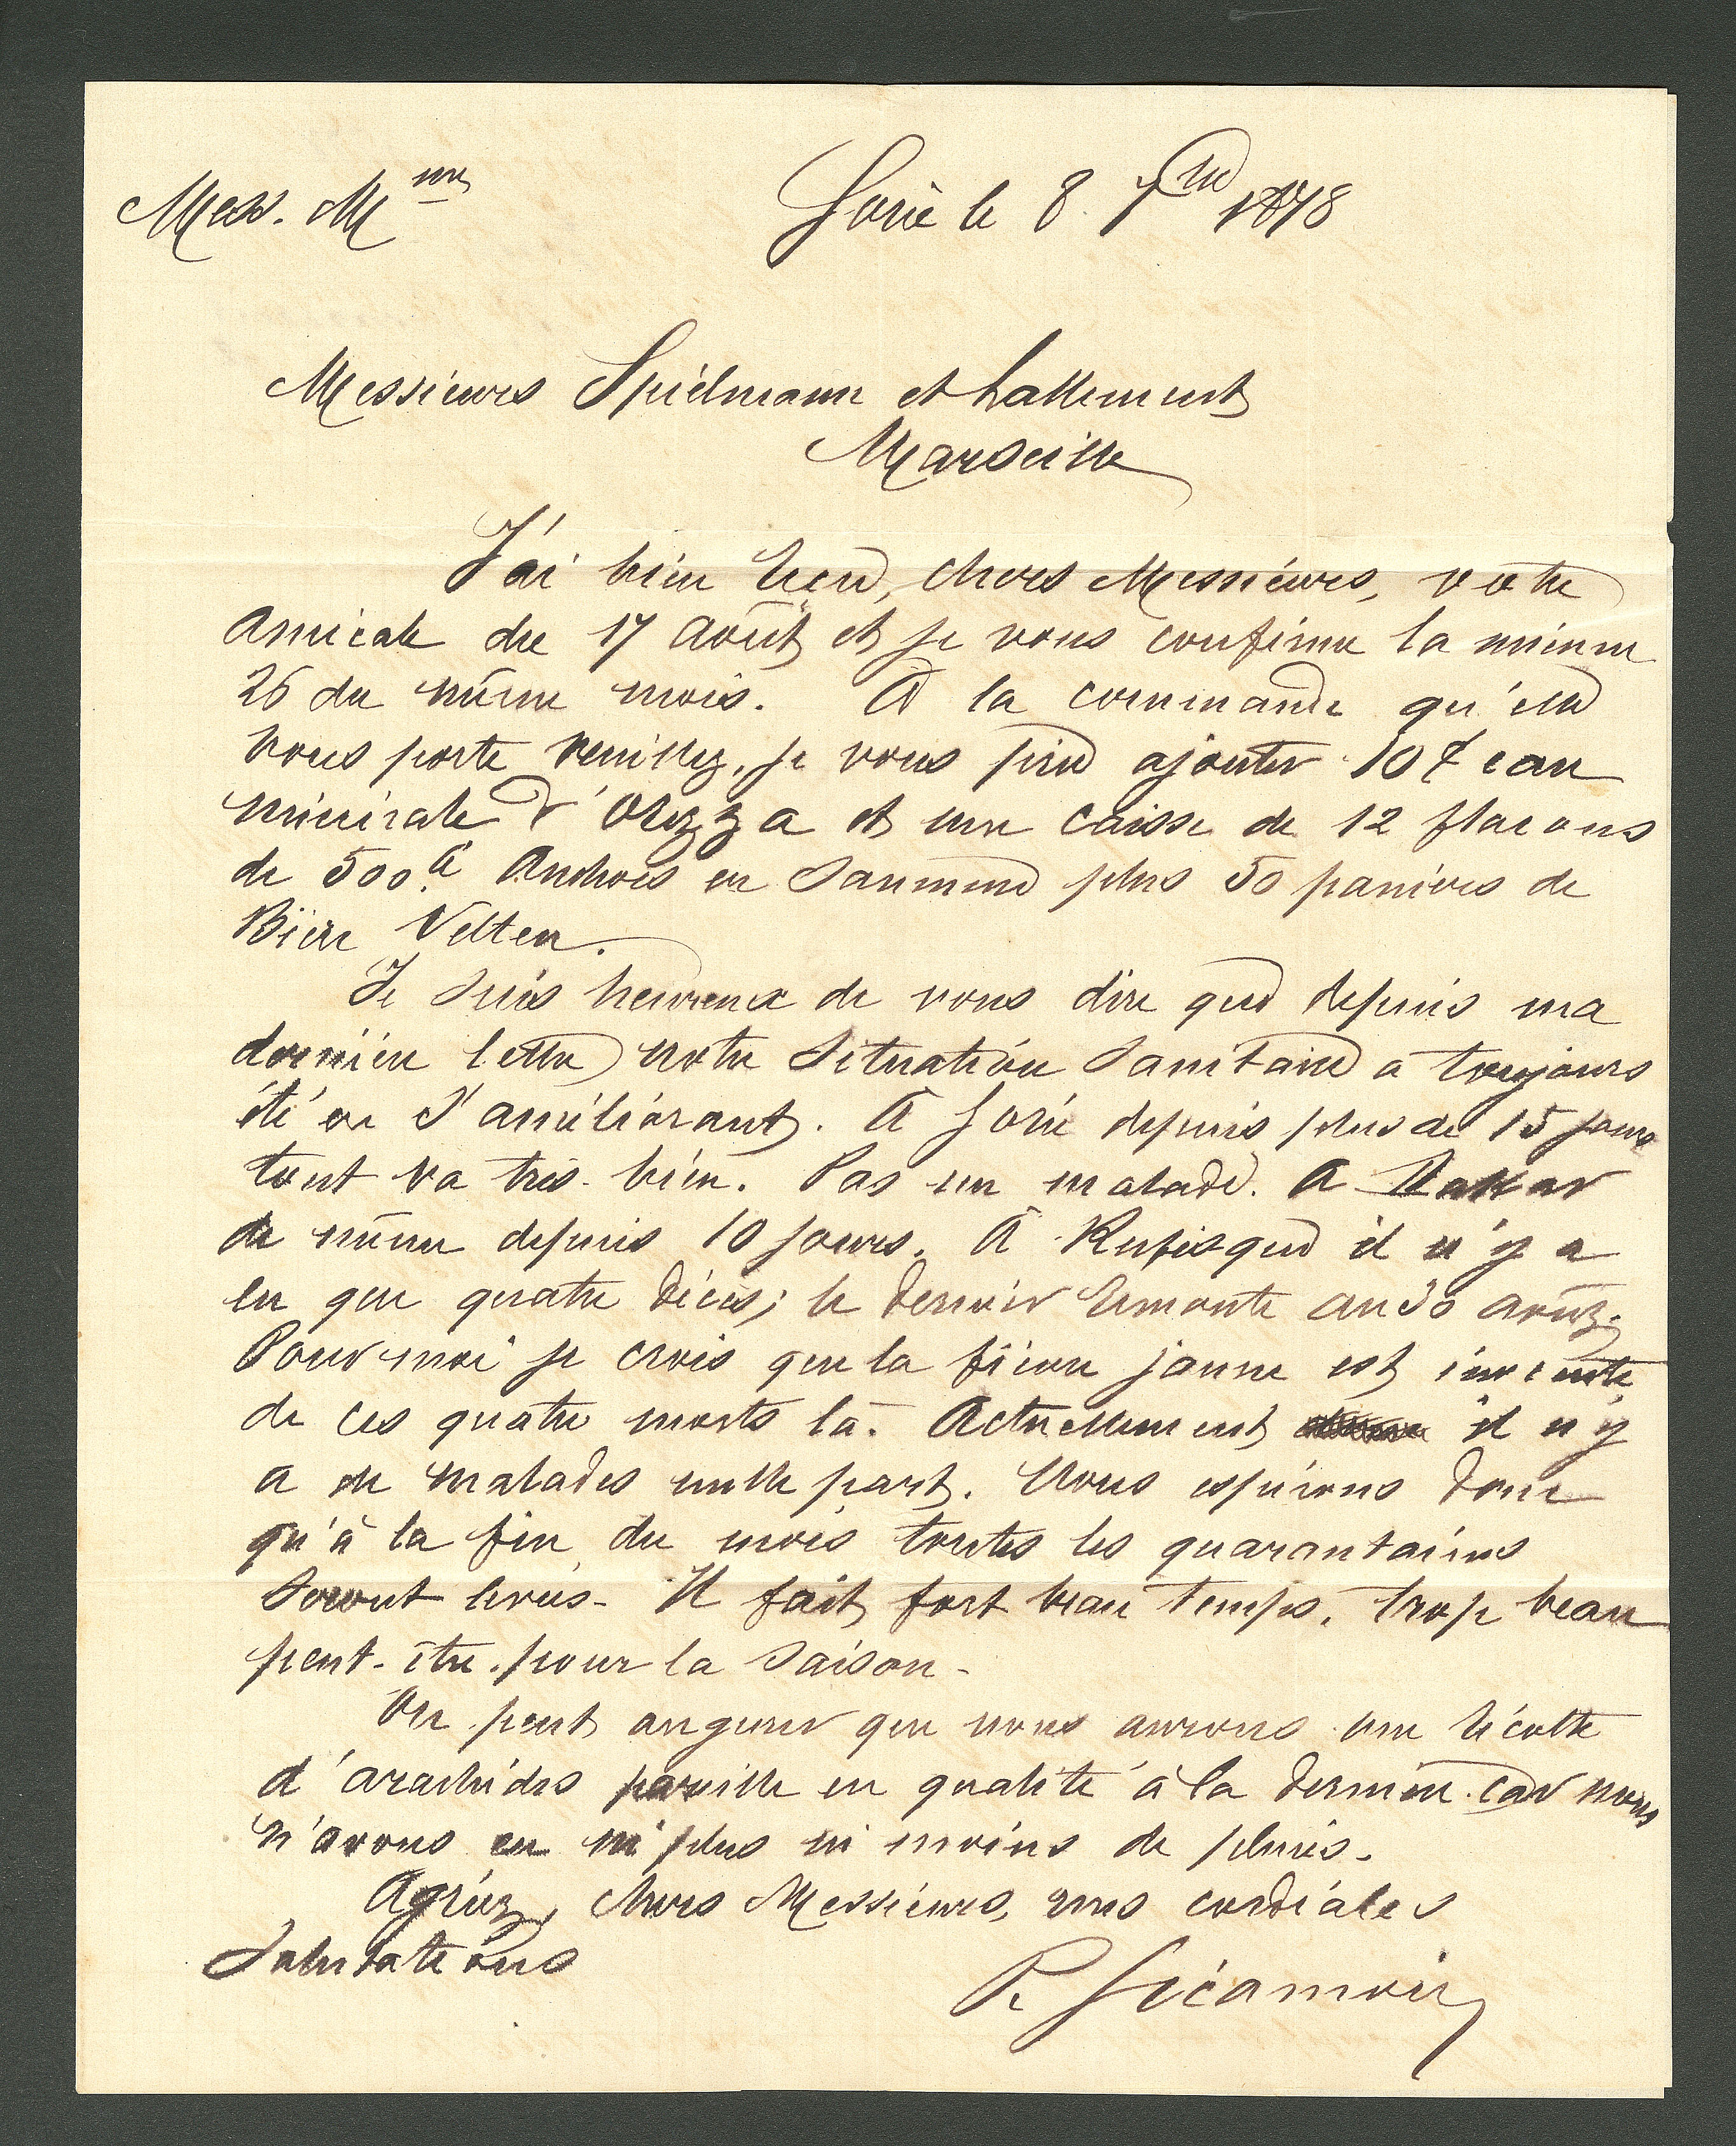 Mess. Mmes
Gorée le 8 7bre 1878
Messieurs Spielmann et Lallement
Marseille
J'ai bien reçu, chers Messieurs, votre
amicale du 17 août et je vous confirme la mienne
26 du même mois. A la commande qu'elle
vous porte veuillez, je vous prie ajouter 10 C eau
minérale d'Orezza et une caisse de 12 flacons
de 500 G Anchois en saumure plus 50 paniers de
Bière Velten.
Je suis heureux de vous dire que depuis ma
dernière lettre notre situation sanitaire a toujours
été en s'améliorant. A Gorée depuis plus de 15 jours
tout va très-bien. Pas un malade. A Dakar
de même depuis 10 jours. A Rufisque il n'y a
eu que quatre décès; le dernier remonte au 30 août.
Pour moi je crois que la fièvre jaune est innocente
de ces quatre morts là. Actuellement il n'y
a de malades nulle part. Nous espérons donc
qu'à la fin du mois toutes les quarantaines
seront levées - Il fait fort beau temps, trop beau
peut-être pour la saison -
On peut augurer que nous aurons une récolte
d'arachides pareille en qualité à la dernière car nous
n'avons eu ni plus ni moins de pluies -
Agréez, chers Messieurs, mes cordiales
Salutations